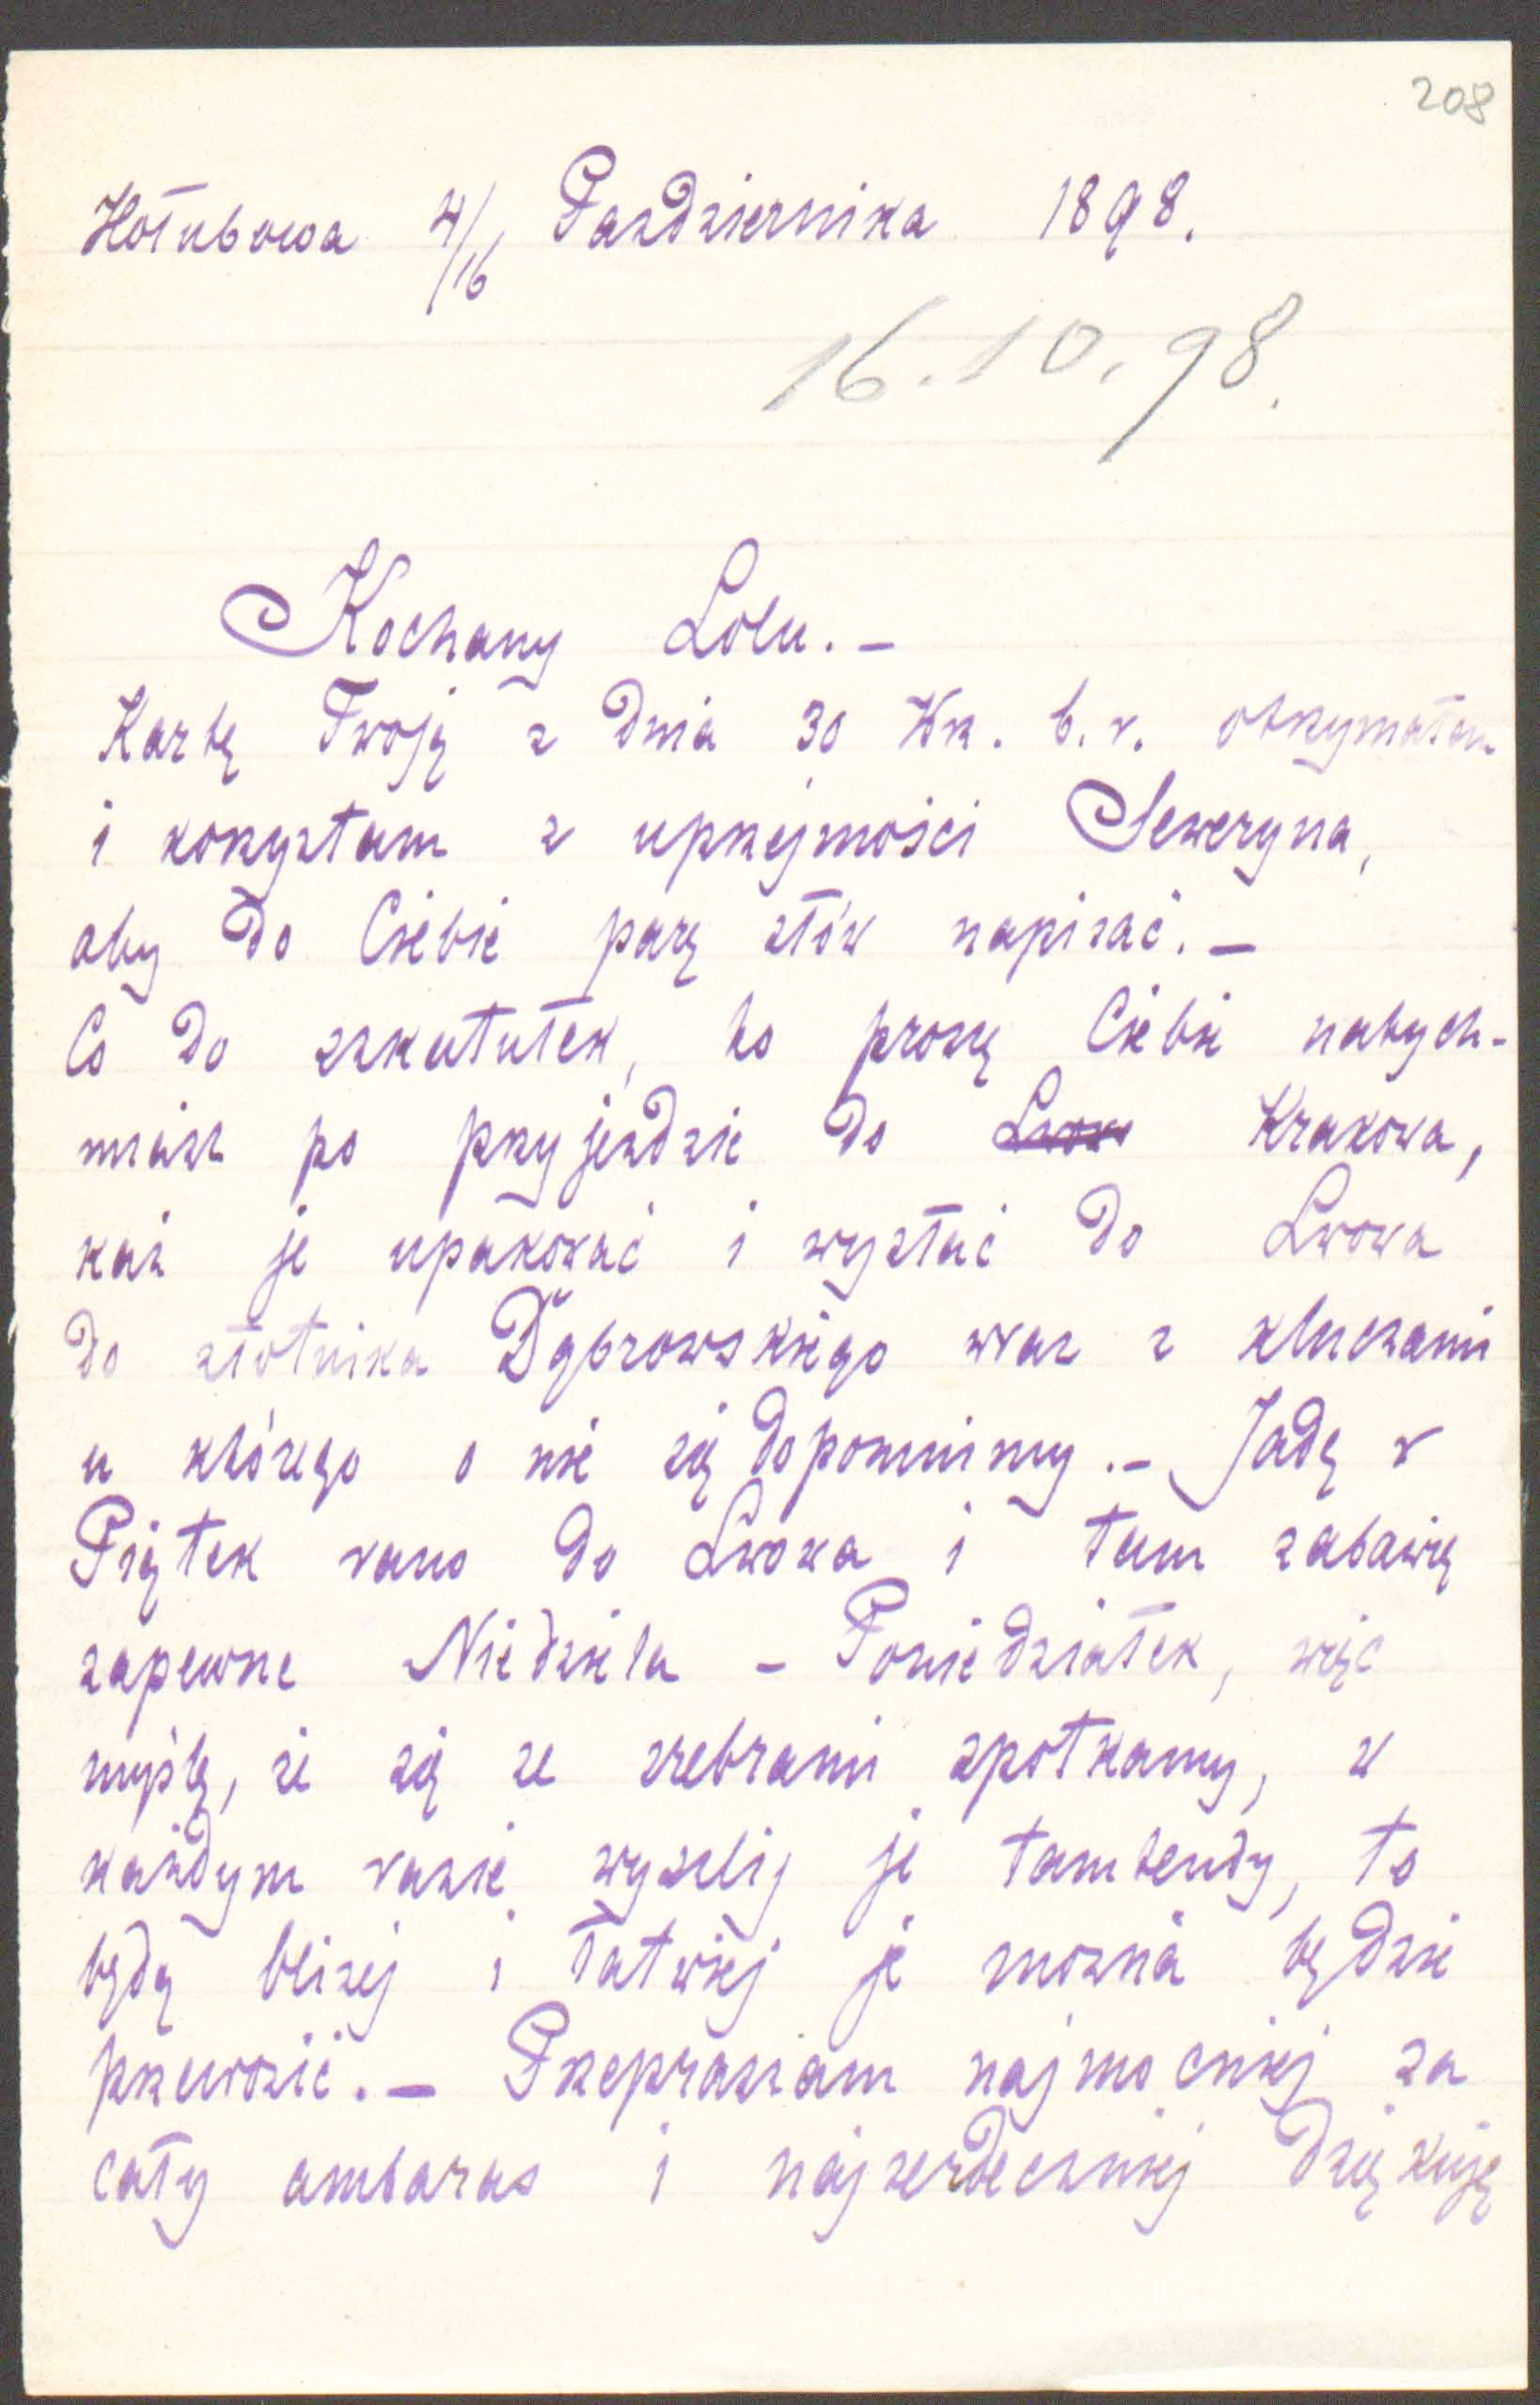 208
Hołubowa 4/16 Pazdziernika 1898.
16.10.98.
Kochany Lolu. –
Kartę Twoję z dnia 30 Wrz. b. r. otrzymałem
i korzystam z uprzejmości Seweryna,
aby do Ciebie parę słów napisać. –
Co do szkatułek, to proszę Ciebie natych-
miast po przyjeździe do Lwow Krakowa,
każ je upakować i wysłać do Lwowa
do złotnika Dąbrowskiego wraz z kluczami
u którego o nie się dopomnimy. – Jadę w
Piątek rano do Lwowa i tam zabawię
zapewne Niedziela – Poniedziałek, więc
myślę, że się ze srebrami spotkamy, w
każdym razie wyszlij je tamtendy, to
będą bliżej i łatwiej je można będzie
przewozić. – Przepraszam najmocniej za
cały ambaras i najserdeczniej dziękuję